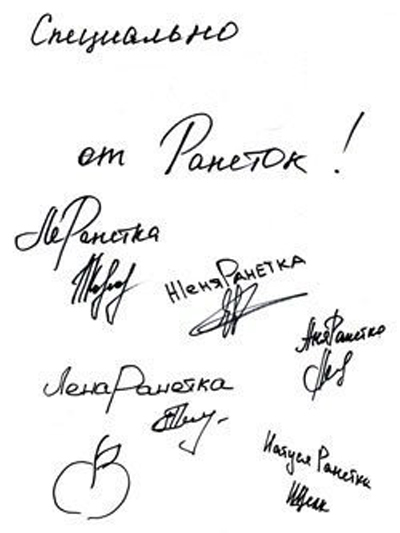 Специально
от Ранеток!
ЛеРанетка
ЖеняРанетка
АняРанетка
ЛенаРанетка
Натуся Ранетка